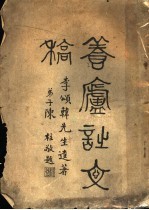 養廬詩文
稿
李頌韓先生遺著
弟子陳柱敬題